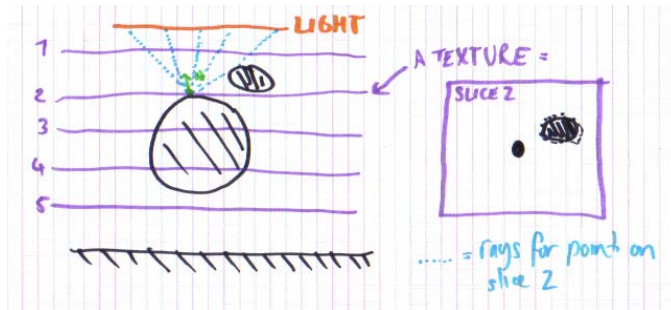 LIGHT
1
2
3
4
5
A TEXTURE =
SLICE 2
...... = rays for point on
slice 2